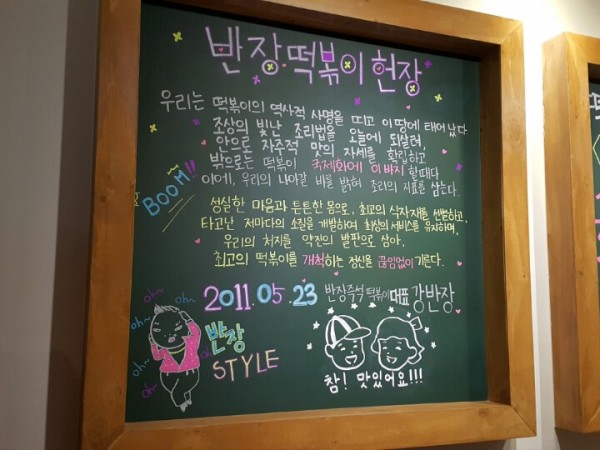 반장떡볶이헌장
우리는 떡볶이의 역사적 사명을 띠고 이 땅에 태어났다
조상의 빛난 조리법을 오늘에 되살려,
안으로 자주적 맛의 자세를 확립하고
밖으로는 떡볶이 국제화에 이바지 할때다
이에, 우리의 나아갈 바를 밝혀 조리의 지표를 삼는다.
성실한 마음과 튼튼한 몸으로, 최고의 식자재를 선별하고,
타고난 저마다의 소질을 개발하여 최상의 서비스를 유지하며,
우리의 처지를 약진의 발판으로 삼아,
최고의 떡볶이를 개척하는 정신을 끊임없이 기른다.
BOOM!!
2011.05.23 반장즉석 떡볶이 대표 강반장
oh~
oh~
oh~
oh~
반장
STYLE
참! 맛있어요!!!